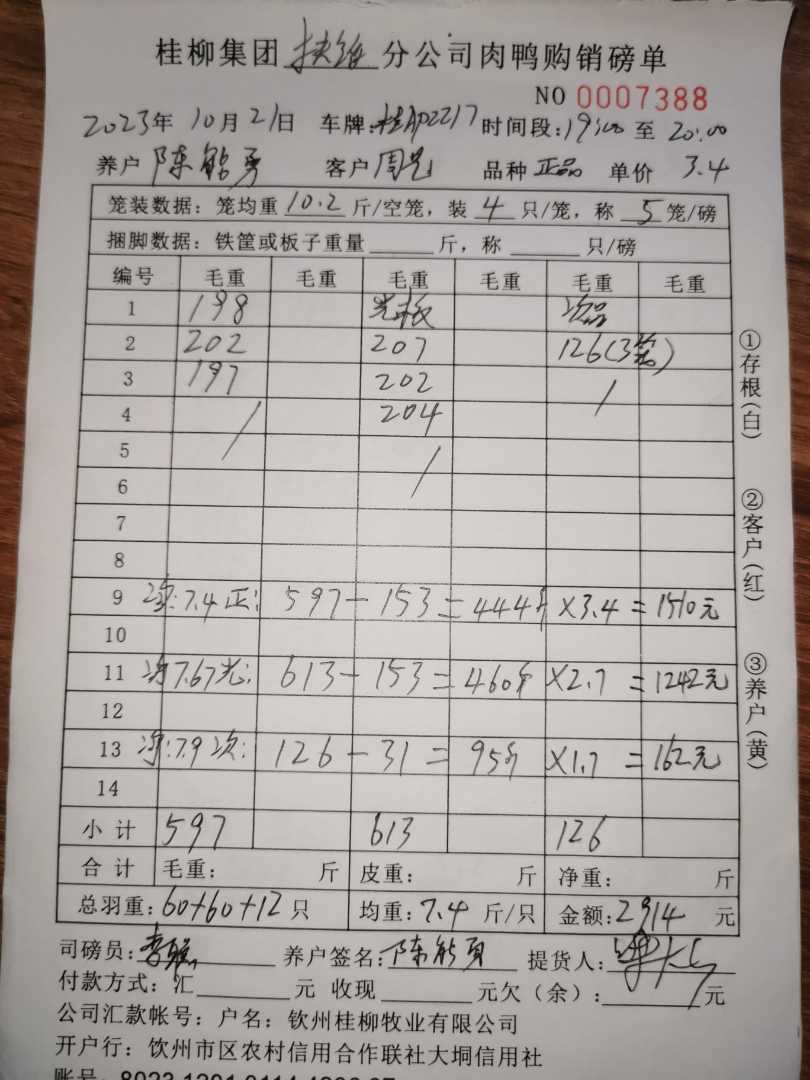 桂柳集团 扶绥 分公司肉鸭购销磅单
NO 0007388
2023年 10月 21日 车牌:桂AP2217 时间段:19:00 至 20:00
养户 陈能勇 客户 周 品种 正品 单价 3.4
笼装数据：笼均重 10.2 斤/空笼，装 4 只/笼，称 5 笼/磅
捆脚数据：铁筐或板子重量 斤，称 只/磅
编号 毛重 毛重 毛重 毛重 毛重 毛重
1 198 次品
2 202 207 126(3笼)
3 197 202 /
4 / 204
5 /
6
7
8
9 净:7.4 正: 597-153=444斤 ×3.4=1510元
10
11 净7.67光: 613-153=460斤 ×2.7=1242元
12
13 净:7.9 次: 126-31=95斤 ×1.7=162元
14
小计 597 613 126
合计 毛重： 斤 皮重： 斤 净重： 斤
总羽重：60+60+12 只 均重：7.4 斤/只 金额：2914 元
司磅员： 养户签名：陈能勇 提货人：
付款方式：汇 元 收现 元欠（余）： 元
公司汇款帐号：户名：钦州桂柳牧业有限公司
开户行：钦州市区农村信用合作联社大垌信用社
①存根(白)
②客户(红)
③养户(黄)